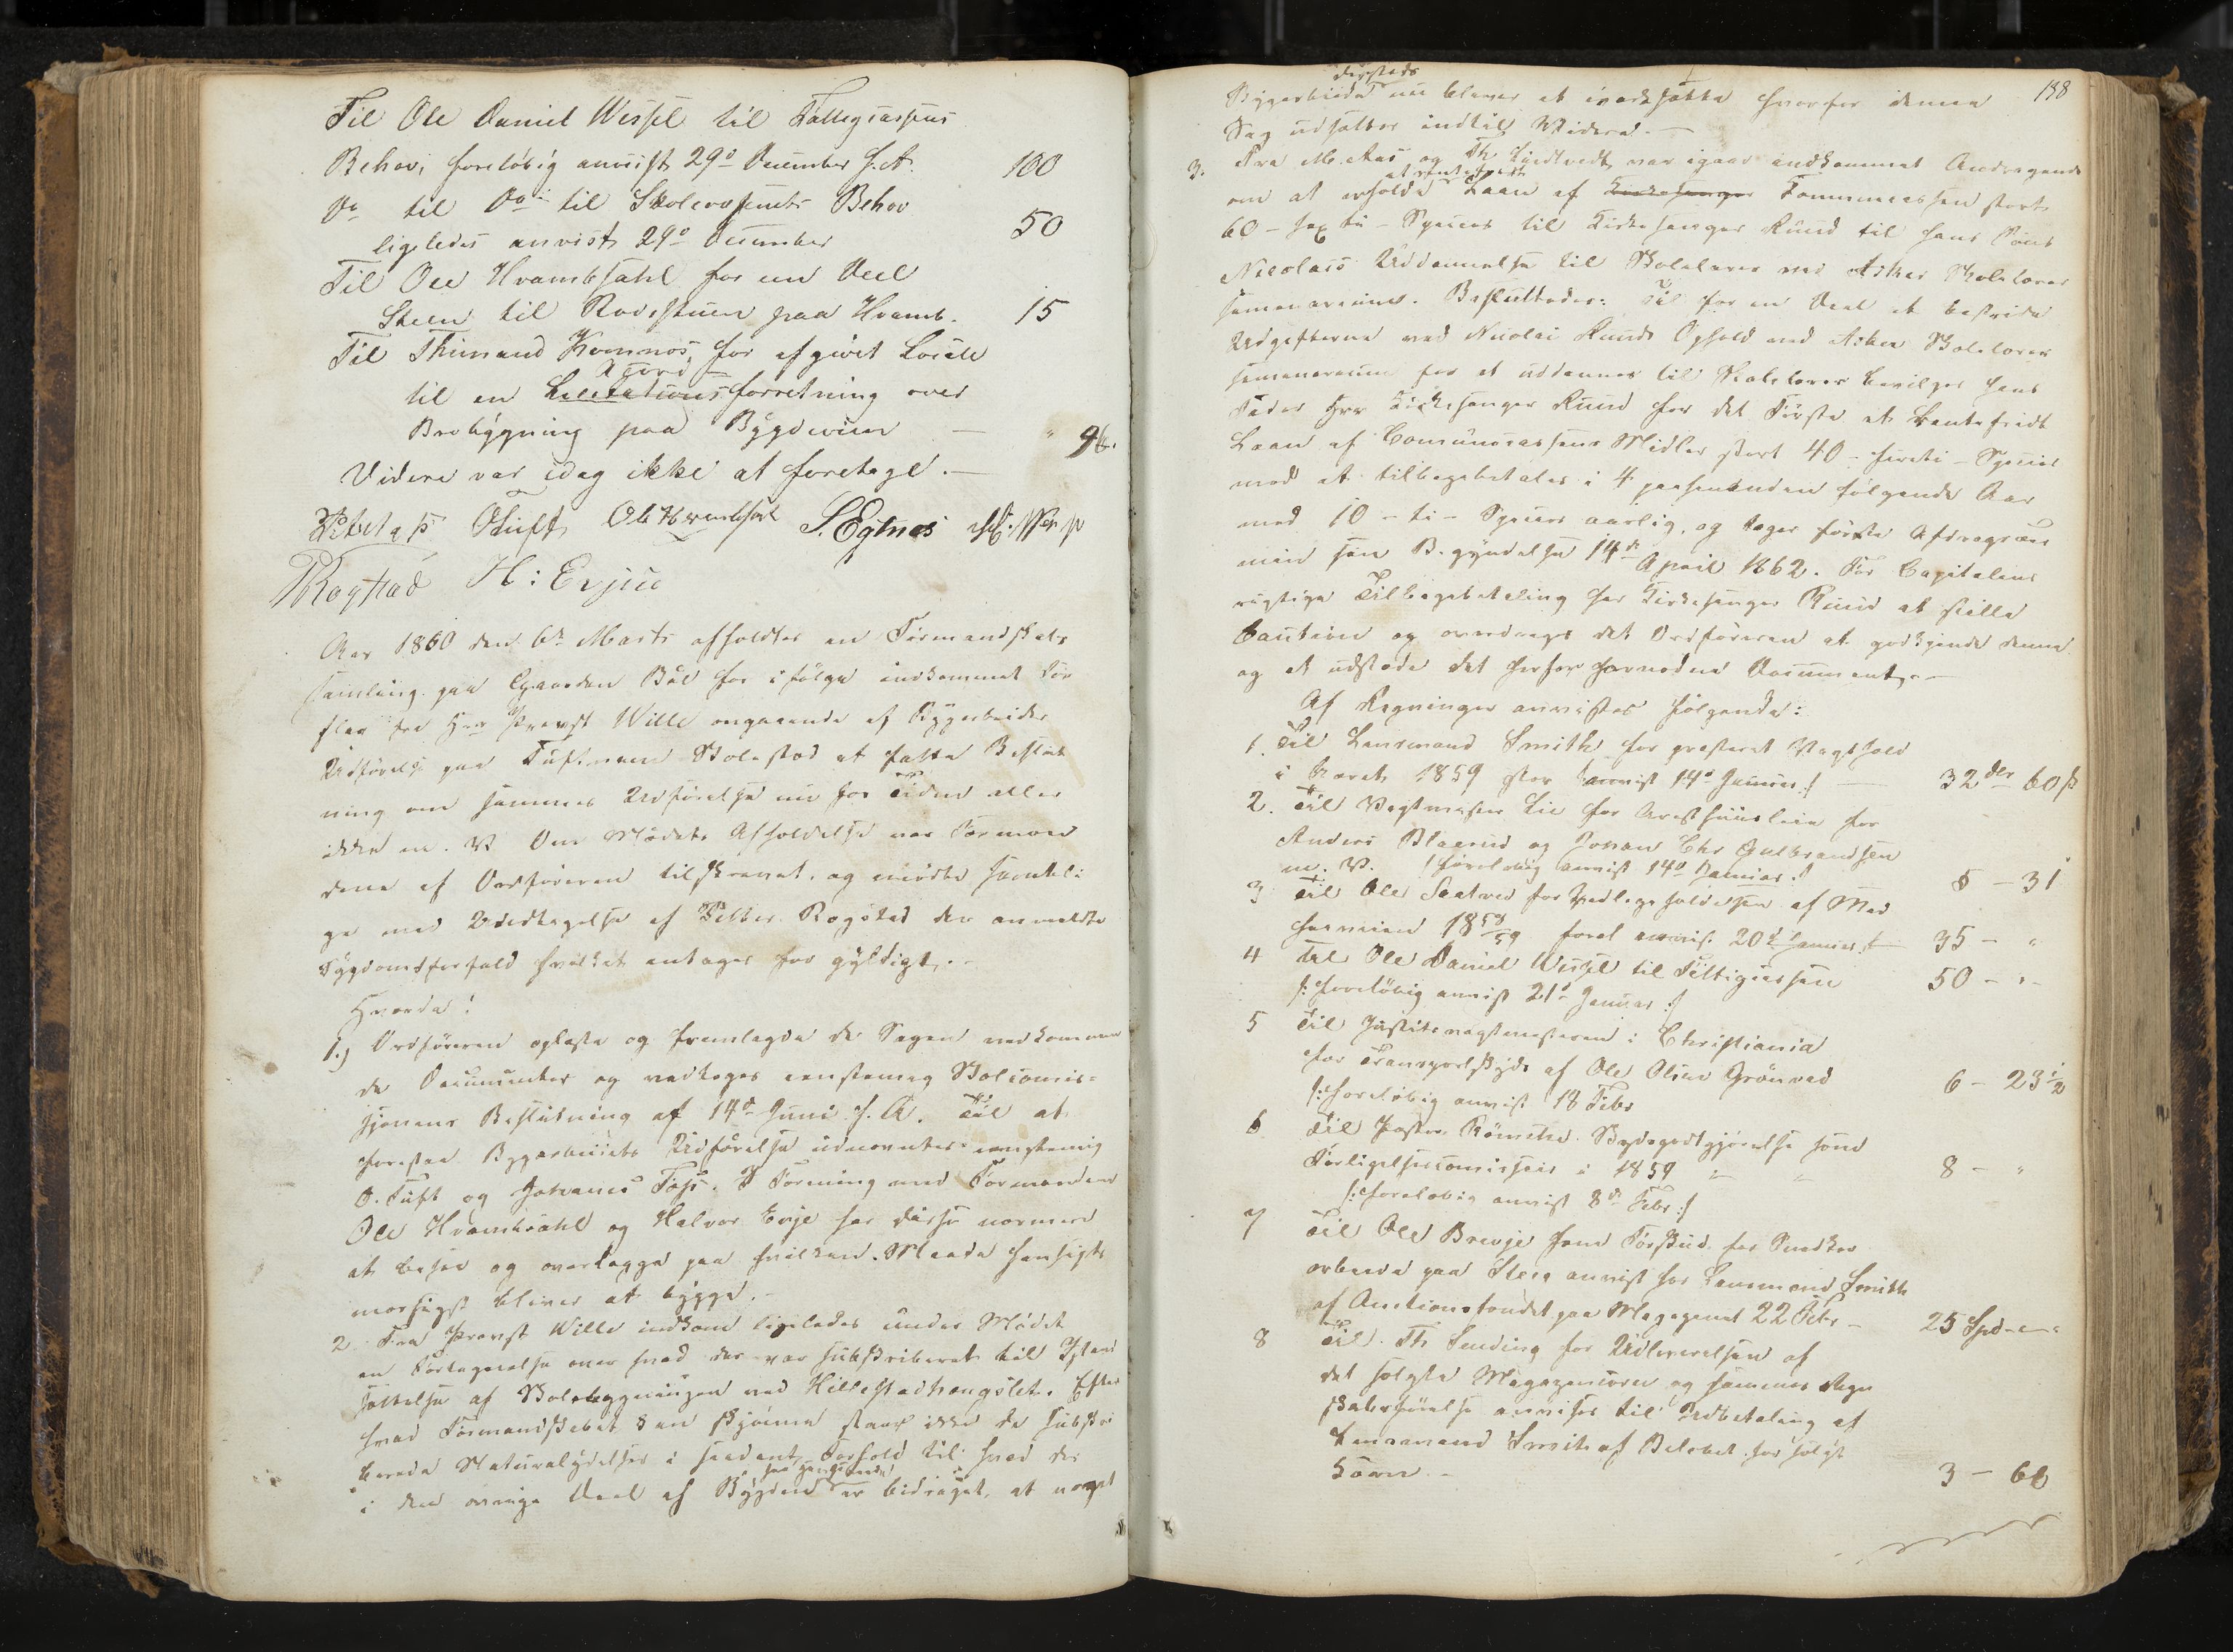 Til Ole Daniel Wessel til Fattigcassens
Behov, foreløbig anvist 29de December f. A. 100
Do til Do til Skolecassens Behov
ligeledes anvist 29de December 50
Til Ole Hvambsahl for en Deel
Steen til Rodestuen paa Hvamb. 15
Til Thimand Komnæs, for afgivet Locale
Accord
til en Licitationsforretning over
Brobygning paa Bygdeveien — " 96.
Videre var idag ikke at foretage.—
OTuft Ole Hvambsahl S. Egtnes
Rogstad H: Evju
Aar 1860 den 6te Marts afholdtes en Formandskabs
samling paa Gaarden Bøe for ifølge indkommet For
slag fra Herr Provst Wille angaaende af Bygarbeider
Udførelse paa Tufte Skolested at fatte Beslut
ning om sammes Udførelse nu for Tiden eller
ikke m. V. Om Mødets Afholdelse var Formæn
dene af Ordføreren tilskrevet, og mødte samtli:
ge med Undtagelse af Petter Rogstad der anmeldte
Sygdomsforfald hvilket antages for gyldigt.—
Hvorda!
1.) Ordføreren oplæste og fremlagde de Sagen vedkommen
de Documenter og vedtoges eenstemig Skolecomis-
sjonens Beslutning af 14de Juni f. A. Til at
forestaa Bygarbeidets Udførelse udnævntes eenstemig
O. Tuft og Johannes Foss. I Forening med Formændene
Ole Hvambsahl og Halvor Evje har disse nærmere
at besee og overlægge paa hvilken Maade hensigts
mæssigst bliver at bygge.—
2. Fra Provst Wille indkom ligeledes under Mødet
en Fortegnelse over hvad der var subskriberet til Istand
sættelse af Skolebygningen ved Hillestadhengslet. Efter
hvad Formandskabet kan skjønne staar ikke de subskri
berede Naturalydelser i saadant Forhold til hvad der
i den øvrige Deel af Bygden er bidraget, at noget
138
dersteds
Bygarbeide nu bliver at iværksætte hvorfor denne
Sag udsættes indtil Videre.—
3. Fra M. Aas og Th. var igaar indkommet Andragende
et rentefrit
om at erholde Laan af Kirkesanger Kommunecassen stort
60 – sexti – Species til Kirkesanger Ruud til hans Søns
Nicolais Uddannelse til Skolelærer ved Asker Skolelærer
semenarium. Besluttedes: Til for en Deel at bestride
Udgifterne ved Nicolai Ruuds Ophold ved Asker Skolelærer
semenarium for at uddannes til Skolelærer bevilges hans
Fader Herr Kirkesanger Ruud for det Første et Rentefridt
Laan af Comunecassens Midler stort 40 – firti – Species
mod at tilbagebetales i 4 paahinanden følgende Aar
med 10 – ti – Species aarlig, og tager første Afdragster
min sin Begyndelse 14de April 1862. For Capitalens
rigtige Tilbagebetaling har Kirkesanger Ruud at stille
Caution og overdrages det Ordføreren at godkjende denne
og at udstede det herfor fornødne Document.—
Af Regninger anvistes følgende:
1. Til Lensmand Smith for præsteret Vagthold
i Aaret 1859 /: anvist 14de Januar :/ — 32 dlr 60 ß
2. Til Vagtmester Lie for Arresthuusleie for
Anders Blaarud og Johan Chr Gulbrandsen
m. V. /: foreløbig anvist 14de Januar :/ 5 – 31
3 Til Ole Saatvedt for Vedligeholdelsen af
1858/59 forel anvist 20de Januar :/ 35 – "
4 Til Ole Daniel Wessel til Fattigcassen
/: foreløbig anvist 21de Januar :/ 50 – "–
5 Til Justitsvagtmesteren i Christiania
for Transportskyds af Ole Olsen Grönvad
/: foreløbig anvist 18 Febr 6 – 23½
6 Til Skydsgodtgjørelse som
Forligelsescomissair i 1859 8 – "
/: foreløbig anvist 8de Febr :/
7 Til Ole Brevje som Forskud for Snedker
arbeide paa anvist hos Lensmand Smith
af Auctionsfondet paa Magazinet 22 Febr – 25 Spd – " – "
8 Til Th. Sending for Udleverelsen af
det solgte Magazincorn og sammes Regn
skabsførelse anvises til Udbetaling af
Lensmand Smith af Beløbet for solgt
Korn.— 3 – 60